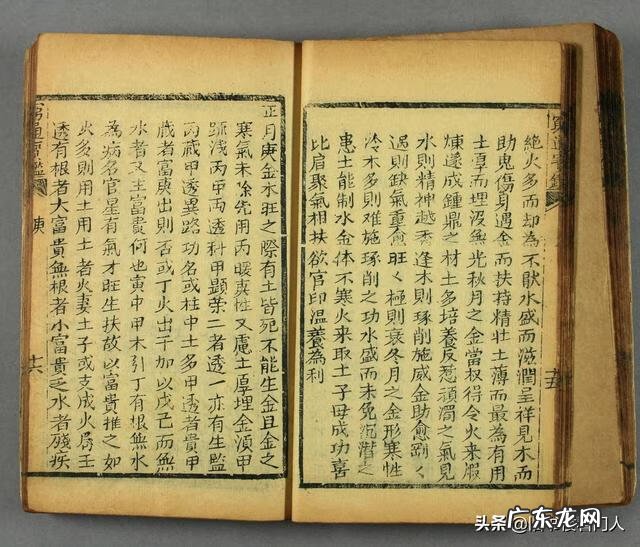 窮通寶鑑
十五
絶火多而却為不厭水盛而滋潤呈祥見木而
助鬼傷身遇金而扶持精壯土薄而最為有用
土厚而埋没無光秋月之金當权得令火来煅
煉遂成鍾鼎之材土多培養反惹頑濁之氣見
水則精神越秀逢木則琢削施威金助愈剛〻
過則缺氣重愈旺〻極則衰冬月之金形寒性
冷木多則难施琢削之功水盛而未免沉潛之
患土能制水金体不寒火来取土子母成功喜
比肩聚氣相扶欲官印温養為利
正月庚金木旺之際有土皆死不能生金且金之
寒氣未除先用丙暖庚性又慮土厚埋金湏甲
踈洩丙甲丙透科甲顯荣二者透一亦有生監
丙藏甲透異路功名或柱中土多甲透者貴甲
藏者富庚出則否或丁火出干加以戊己而無
水者又主富貴何也寅中甲木引丁有根無水
為病名官星有氣才旺生扶故以富貴推之如
火多則用土用土者火妻土子或支成火局壬
透有根者大富貴無根者小富貴乏水者殘疾
窮通寶鑑
庚
十六
头条
广东龙网
www.gdlonG.com